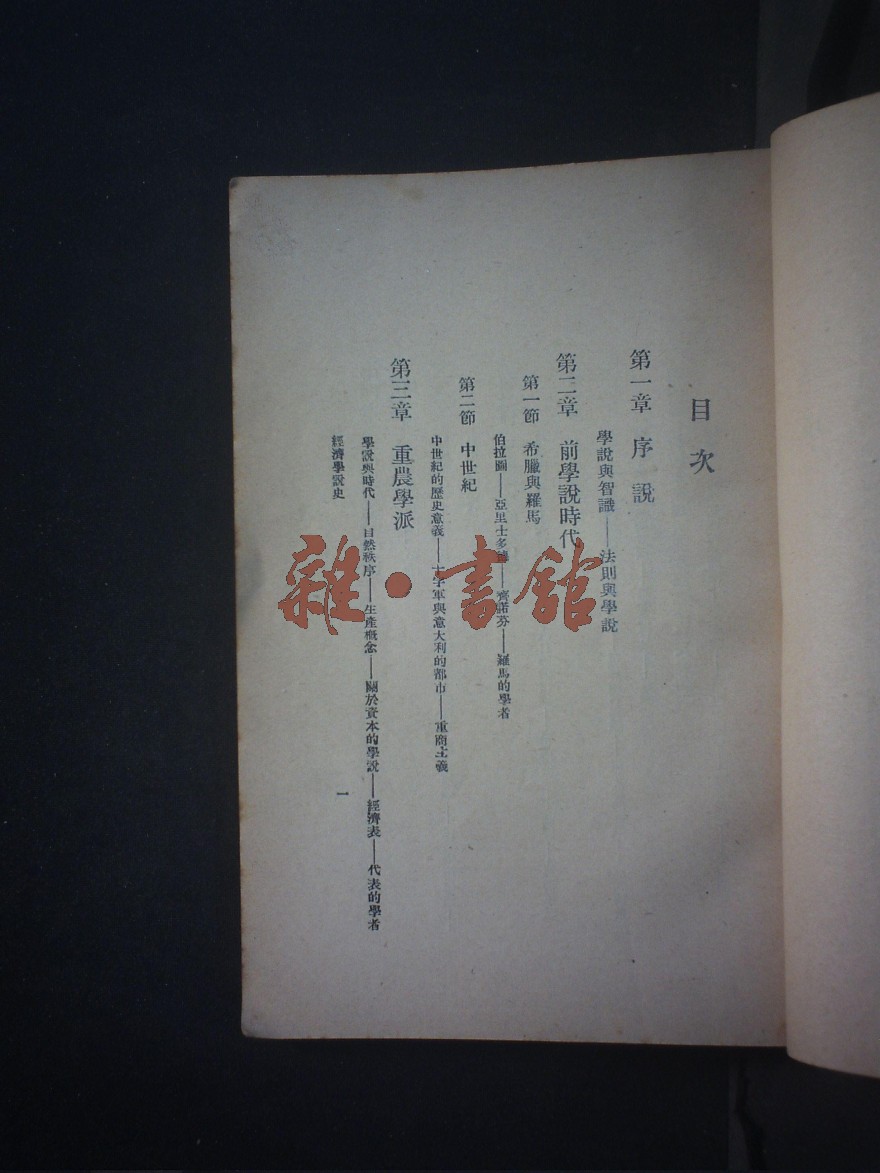 目次
第一章 序說
學說與智識——法則與學說
第二章 前學說時代
第一節 希臘與羅馬
伯拉圖——亞里士多德——齊諾芬——羅馬的學者
第二節 中世紀
中世紀的歷史意義——十字軍與意大利的都市——重商主義
第三章 重農學派
學說與時代——自然秩序——生產概念——關於資本的學說——經濟表——代表的學者
經濟學說史
一
雜·書館